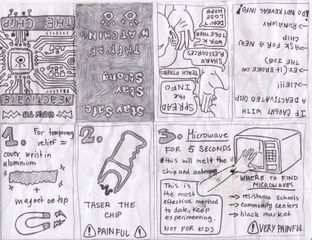 HOW TO
DEACTIVATE
THE CHIP
Stay Safe
Stay
Strong
WATCHING
SPREAD
THE
INFO
SHARE
RESOURCES
TEACH OTHERS
WORK
TOGETHER
DON'T
HOPE
IF CAUGHT WITH
A DEACTIVATED CHIP
→ LIE!!
(EX: BROKE ON
THE JOB)
→ ASK FOR A NEW
CHIP
! DO NOT REVEAL INFO
1. For temporary
relief =
cover wrist in
aluminium
+
magnet on top
2.
TASER THE
CHIP
! PAINFUL !
3. Microwave
FOR 5 SECONDS
this will melt the
chip and antenna
This is
the most
effective method
to date. Keep
experimenting.
NOT FOR KIDS
WHERE TO FIND
MICROWAVES
→ resistance schools
→ community centers
→ black market
! VERY PAINFUL